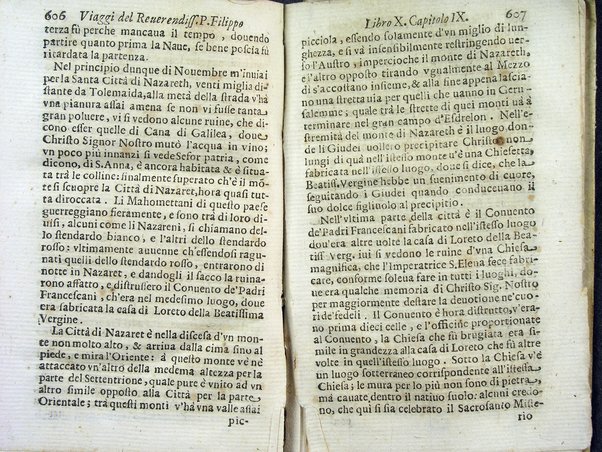 606 Viaggi del Reuerendiss. P. Filippo
terza fù perche mancaua il tempo, douendo
partire quanto prima la Naue, se bene poscia fù
ritardata la partenza.
Nel principio dunque di Nouembre m'inuiai
per la Santa Città di Nazareth, venti miglia di-
stante da Tolemaida, alla metà della strada v'ha
vna pianura assai amena se non vi fusse tanta
gran poluere, vi si vedono alcune ruine, che di-
cono esser quelle di Cana di Galilea, doue
Christo Signor Nostro mutò l'acqua in vino;
vn poco più innanzi si vede Sefor patria, come
dicono, di S. Anna, è ancora habitata & è situa-
ta trà le colline: finalmente superato ch'è il mõ-
te si scuopre la Città di Nazaret, hora quasi tut-
ta diroccata. Li Mahomettani di questo paese
guerreggiano fieramente, e sono trà di loro di-
uisi, alcuni come li Nazareni, si chiamano del-
lo stendardo bianco, e l'altri dello stendardo
rosso: vltimamente auuenne ch'essendosi ragu-
nati quelli dello stendardo rosso, entrarono di
notte in Nazaret, e dandogli il sacco la ruina-
rono affatto, e distrussero il Conuento de'Padri
Francescani, ch'era nel medesimo luogo, doue
era fabricata la casa di Loreto della Beatissima
Vergine.
La Città di Nazaret è nella discesa d'vn mon-
te non molto alto, & arriua dalla cima sino al
piede, e mira l'Oriente: à questo monte v'è nè
attaccato vn'altro della medema altezza per la
parte del Settentrione, quale pure è vnito ad vn
altro simile opposto alla Città per la parte
Orientale; trà questi monti v'ha vna valle assai
pic-
Libro X. Capitolo IX. 607
picciola, essendo solamente d'vn miglio di lun-
ghezza, e si và insensibilmente restringendo uer-
so l'Austro, impercioche il monte di Nazareth,
e l'altro opposto tirando vgualmente al Mezzo
dì s'accostano insieme, & alla fine appena lascia-
no una stretta uia per quelli che uanno in Geru-
salemme; quale trà le strette di quei monti uà à
terminare nel gran campo d'Esdrelon. Nell'e-
stremità del monte di Nazareth è il luogo don-
de li Giudei uollero precipitare Christo: non
lungi di quà nell'istesso monte u'è una Chiesetta,
fabricata nell'istesso luogo, doue si dice, che la
Beatiss. Vergine hebbe un suenimento di cuore,
seguitando i Giudei quando conduceuano il
suo dolce figliuolo al precipitio.
Nell'vltima parte della città è il Conuento
de'Padri Francescani fabricato nell'istesso luogo
dou'era altre uolte la casa di Loreto della Bea-
tiss Verg. iui si vedono le ruine d'vna Chiesa
magnifica, che l'Imperatrice S. Elena fece fabri-
care, conforme soleua fare in tutti i luoghi, do-
ue era qualche memoria di Christo Sig. Nostro
per maggiormente destare la deuotione ne'cuo-
ri de'fedeli. Il Conuento è hora distrutto, v'era-
no prima dieci celle, e l'officine proportionate
al Conuento, la Chiesa che fù brugiata era si-
mile in grandezza alla casa di Loreto che fù altre
uolte in quell'istesso luogo. Sotto la Chiesa v'è
un luogo sotterraneo corrispondente all'istessa
Chiesa; le mura per lo più non sono di pietra,
ma cauate dentro il natiuo suolo. alcuni credo-
no, che qui si sia celebrato il Sacrosanto Miste-
rio